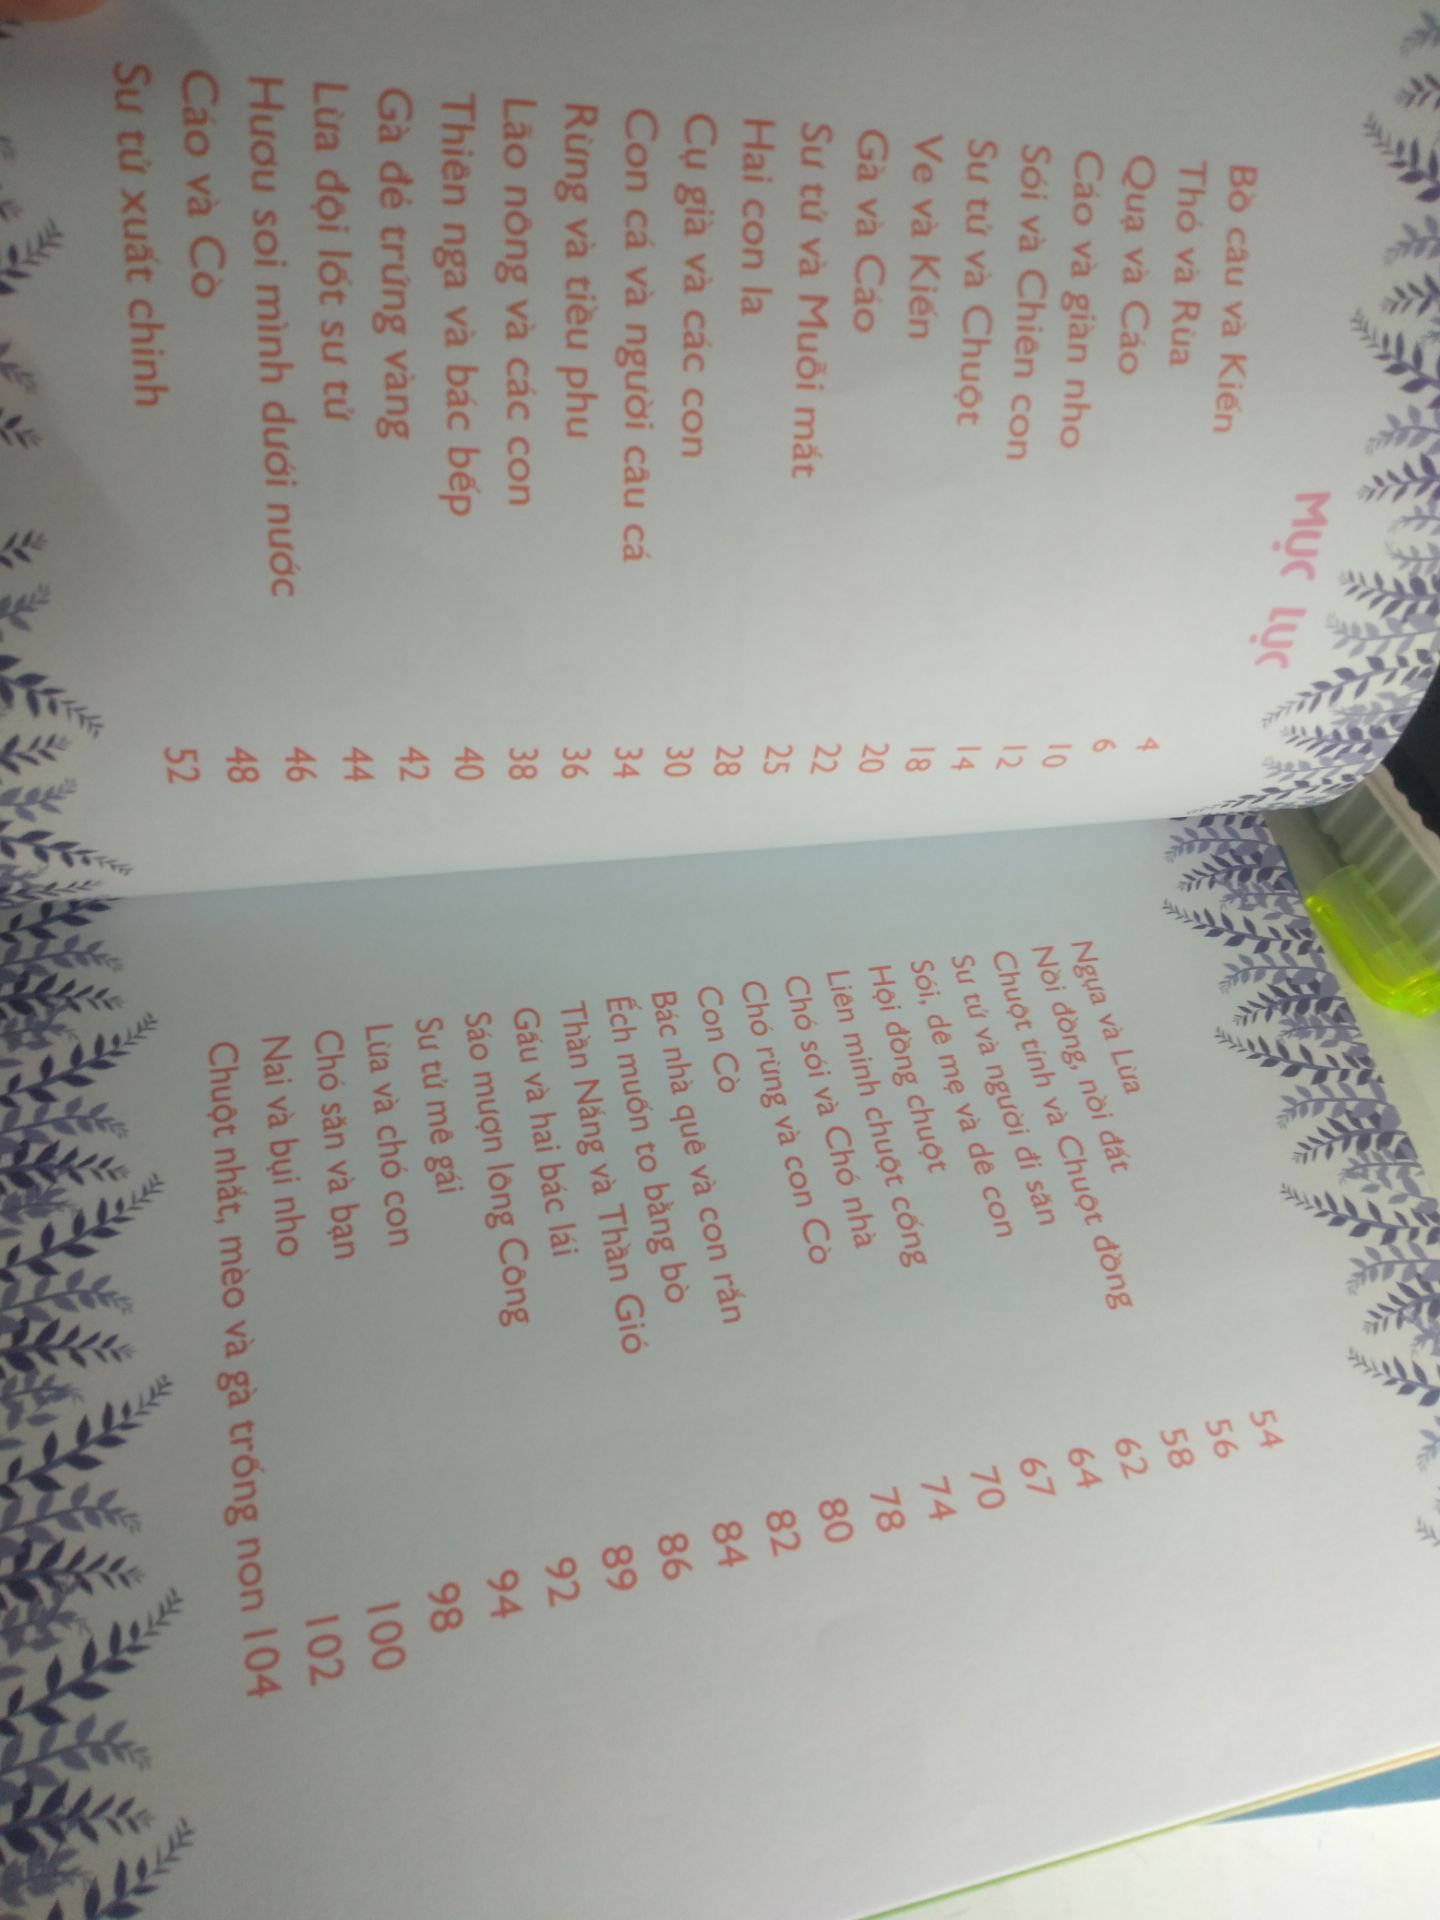 Mục lục
Bồ câu và Kiến 4
Thỏ và Rùa 6
Quạ và Cáo 10
Cáo và giàn nho 12
Sói và Chiên con 14
Sư tử và Chuột 18
Ve và Kiến 20
Gà và Cáo 22
Sư tử và Muỗi mắt 25
Hai con la 28
Cụ già và các con 30
Con cá và người câu cá 34
Rừng và tiều phu 36
Lão nông và các con 38
Thiên nga và bác bếp 40
Gà đẻ trứng vàng 42
Lừa đội lốt sư tử 44
Hươu soi mình dưới nước 46
Cáo và Cò 48
Sư tử xuất chinh 52
Ngựa và Lừa 54
Nồi đồng, nồi đất 56
Chuột tỉnh và Chuột đồng 58
Sư tử và người đi săn 62
Sói, dê mẹ và dê con 64
Hội đồng chuột 67
Liên minh chuột cống 70
Chó sói và Chó nhà 74
Chó rừng và con Cò 78
Con Cò 80
Bác nhà quê và con rắn 82
Ếch muốn to bằng bò 84
Thần Nắng và Thần Gió 86
Gấu và hai bác lái 89
Sáo mượn lông Công 92
Sư tử mê gái 94
Lừa và chó con 98
Chó săn và bạn 100
Nai và bụi nho 102
Chuột nhắt, mèo và gà trống non 104